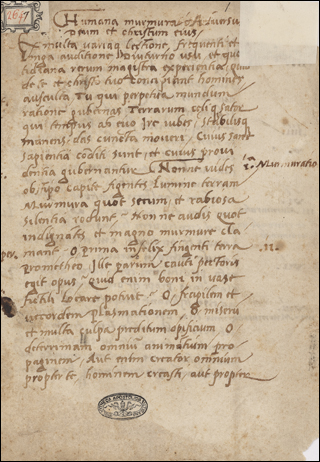 2647
Humana murmura Adversus
Deum et christum eius.
multa variaq lectione, frequenti et
longa auditione Diuturno usu et quo
tidiana rerum magistra experientia, quid
de te et christo tuo conqueRant homines
ausculta Tu qui perpetua mundum
ratione gubernas Terrarum celiq Sator
qui tempus ab euo Ire iubes, stabilisq
manens das cuncta moveri, Cuius sancta
sapientia condita sunt, et cuius provi
dentia gubernantur Nonne vides
i. Murmuratio
obstipo Capite figentes lumine terram
Murmura quot secum, et rabiosa
silentia rodunt. Non ne audis quot
indignates et magno murmure cla
mant. O prima infelix fingenti tera
.11.
prometheo Ille parum cauti pectoris
egit opus. quid enim boni in vase
fictili locare potuit? O fragilem et
vecordem plasmationem, O miseru
et multa culpa preditum opificium O
deterrimam omnium animantum pro
paginem. Aut enim creator omnium
propter te hominem creasti, aut propter